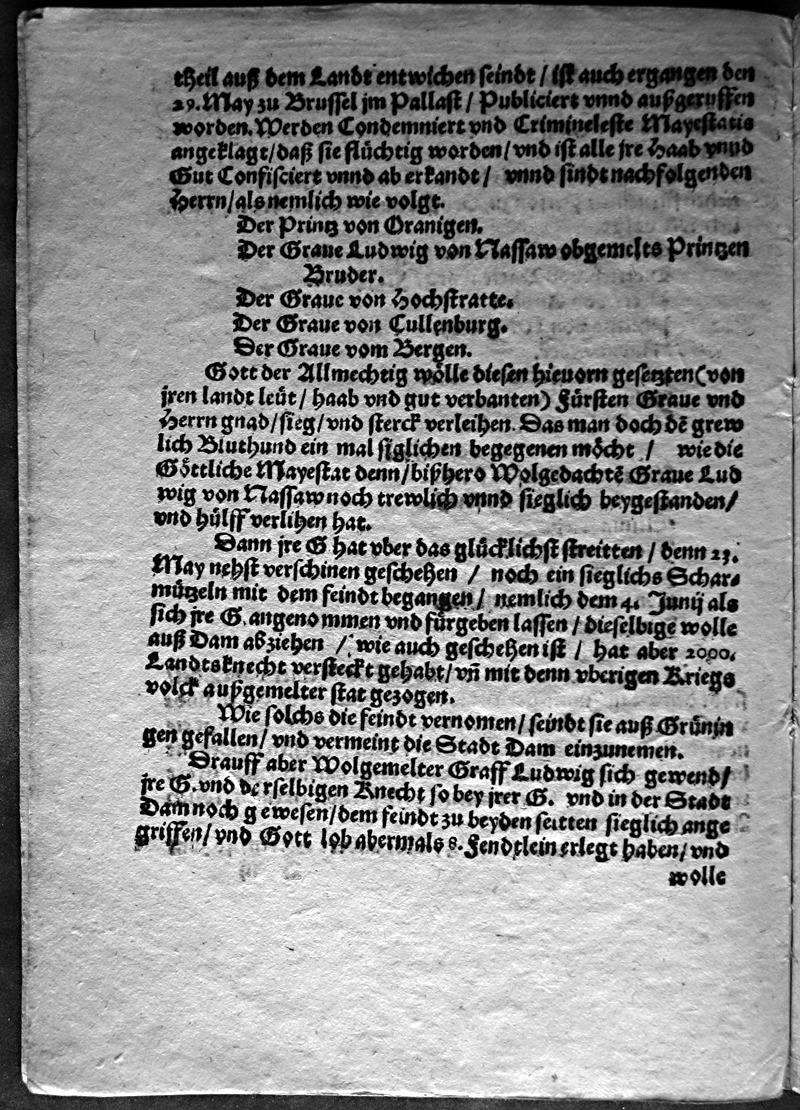 theil auß dem Landt entwichen seindt / ist auch ergangen den
29. May zu Brussel jm Pallast / Publiciert vnnd außgeruffen
worden. Werden Condemniert vnd Crimineleste Mayestatis
angeklagt / daß sie flüchtig worden / vnd ist alle jre Haab vnnd
Gut Confisciert vnnd ab erkandt / vnnd sindt nachfolgenden
Herrn / als nemlich wie volgt.
Der Printz von Oranigen.
Der Graue Ludwig von Nassaw obgemelts Printzen
Bruder.
Der Graue von Hochstratte.
Der Graue von Cullenburg.
Der Graue vom Bergen.
Gott der Allmechtig wölle diesen hieuorn gesetzten (von
jren landt leüt / haab vnd gut verbanten) Fürsten Graue vnd
Herrn gnad / sieg / vnd sterck verleihen. Das man doch dē grew
lich Bluthund ein mal siglichen begegenen möcht / wie die
Göttliche Mayestat denn / bißhero Wolgedachtē Graue Lud
wig von Nassaw noch trewlich vnnd sieglich beygestanden /
vnd hülff verlihen hat.
Dann jre G hat vber das glücklichst streitten / denn 23.
May nehst verschinen geschehen / noch ein sieglichs Schar⸗
mützeln mit dem feindt begangen / nemlich dem 4. Junij als
sich jre G. angenommen vnd fürgeben lassen / dieselbige wolle
auß Dam abziehen / wie auch geschehen ist / hat aber 2000.
Landtsknecht versteckt gehabt / vñ mit denn vberigen Kriegs
volck außgemelter stat gezogen.
Wie solchs die feindt vernomen / seindt sie auß Grünin
gen gefallen / vnd vermeint die Stadt Dam einzunemen.
Drauff aber Wolgemelter Graff Ludwig sich gewend /
jre G. vnd derselbigen Knecht so bey jrer G. vnd in der Stadt
Dam noch gewesen / dem feindt zu beyden seitten sieglich ange
griffen / vnd Gott lob abermals 8. Fendtlein erlegt haben / vnd
wolle